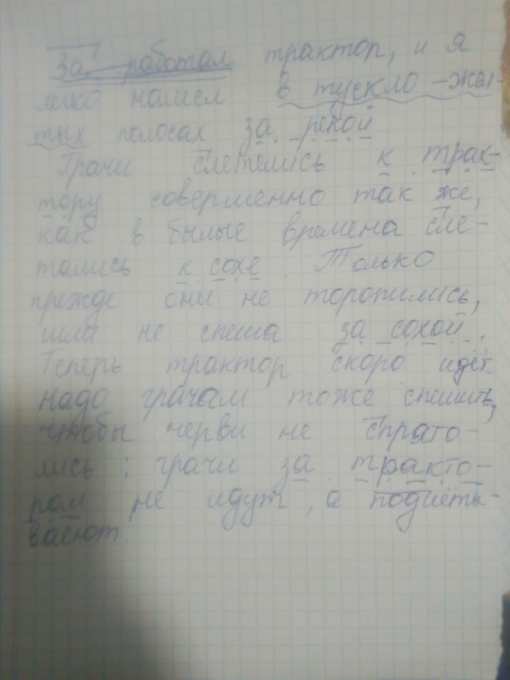 За работал трактор, и я
легко нашел в тускло-жел-
тых полосах за рекой
Грачи слетелись к трак-
тору совершенно так же,
как в былые времена сле-
тались к сохе. Только
прежде они не торопились,
шла не спеша за сохой.
Теперь трактор скоро идёт
надо грачам тоже спешить,
чтобы черви не спрята-
лись: грачи за тракто-
ром не идут, а подлеты-
вают.